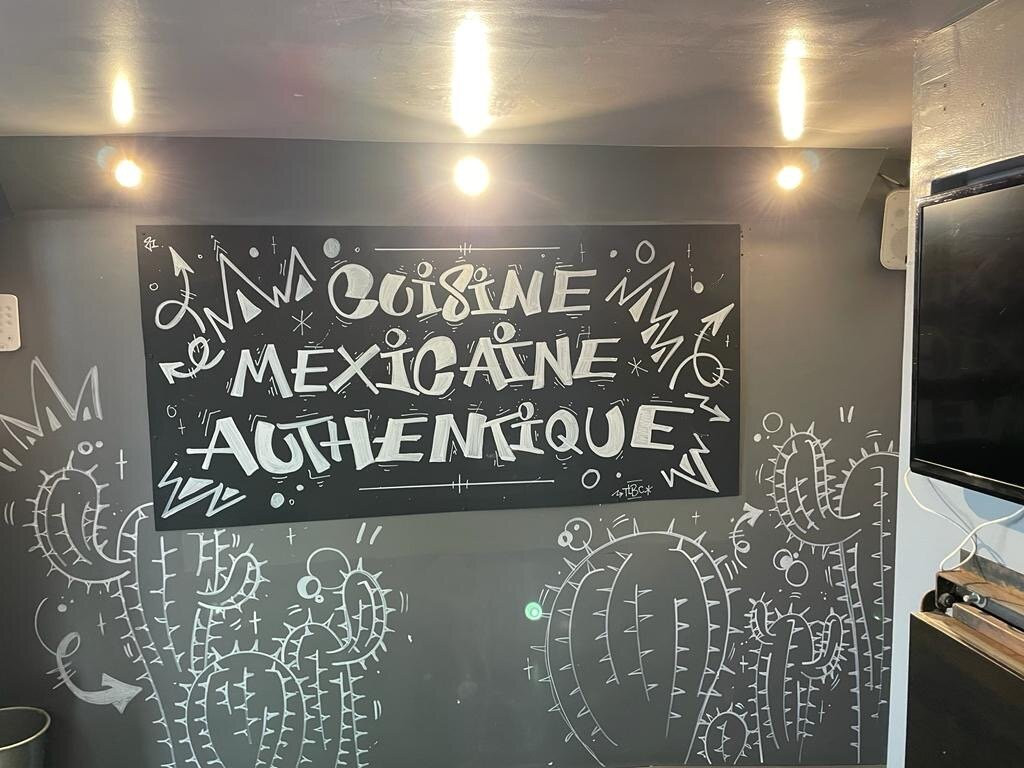 CUISINE
MEXICAINE
AUTHENTIQUE